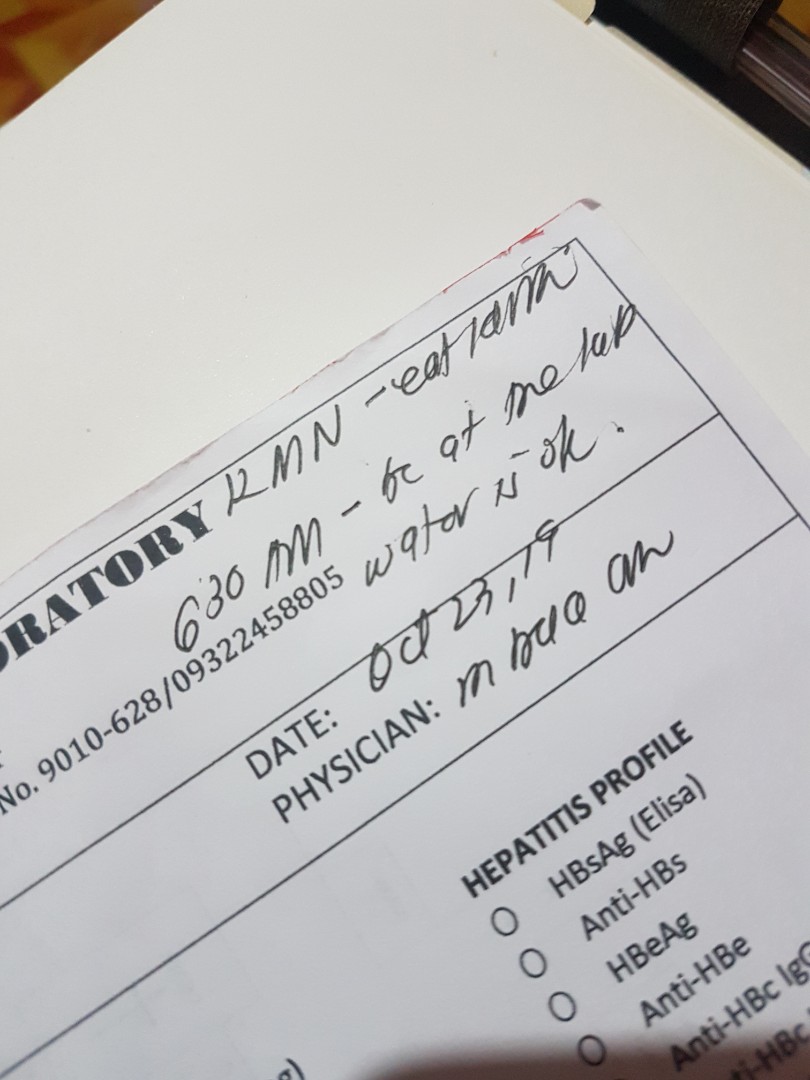 ORATORY 12 MN - eat
630 AM - be at the lab
No. 9010-628/09322458805 water is ok.
DATE: Oct 23, 19
PHYSICIAN: m
HEPATITIS PROFILE
HBsAg (Elisa)
Anti-HBs
HBeAg
Anti-HBe
Anti-HBc IgG